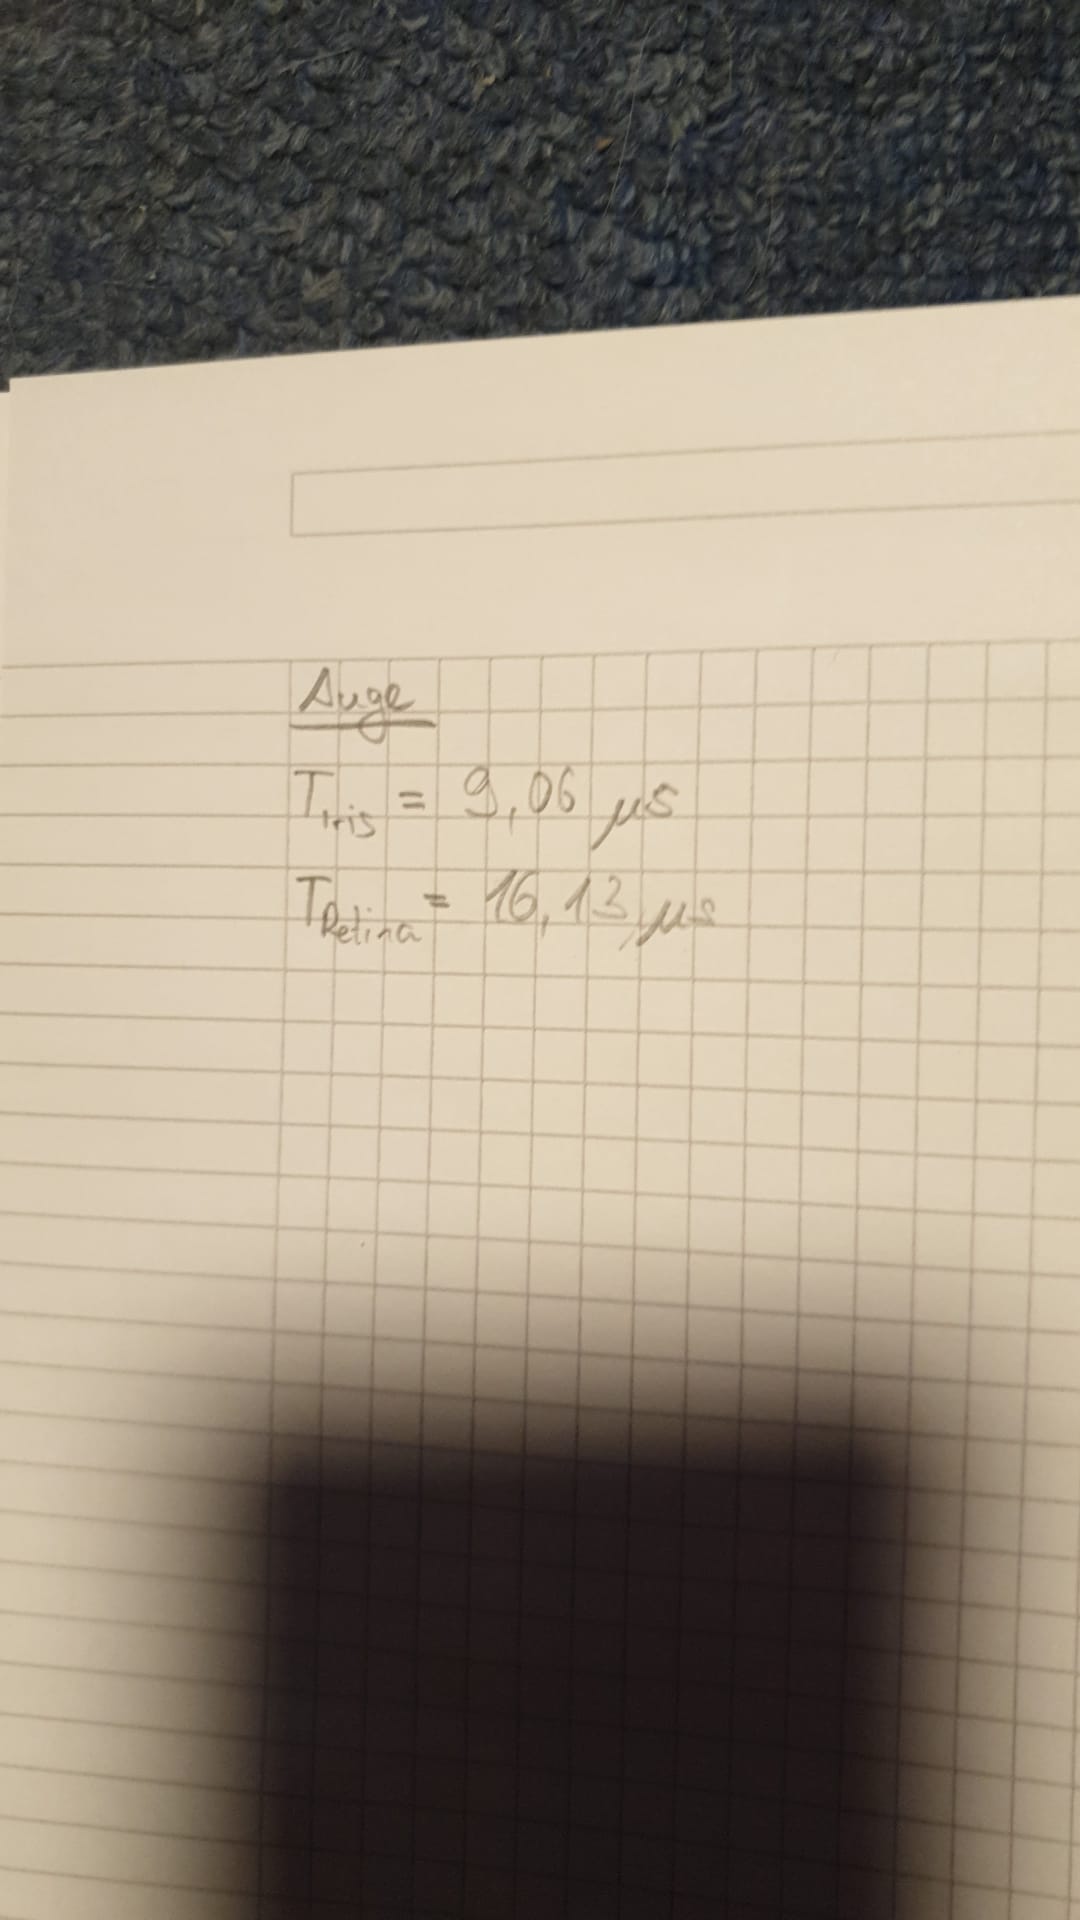 Auge
T_Iris = 9,06 µs
T_Retina = 16,13 µs